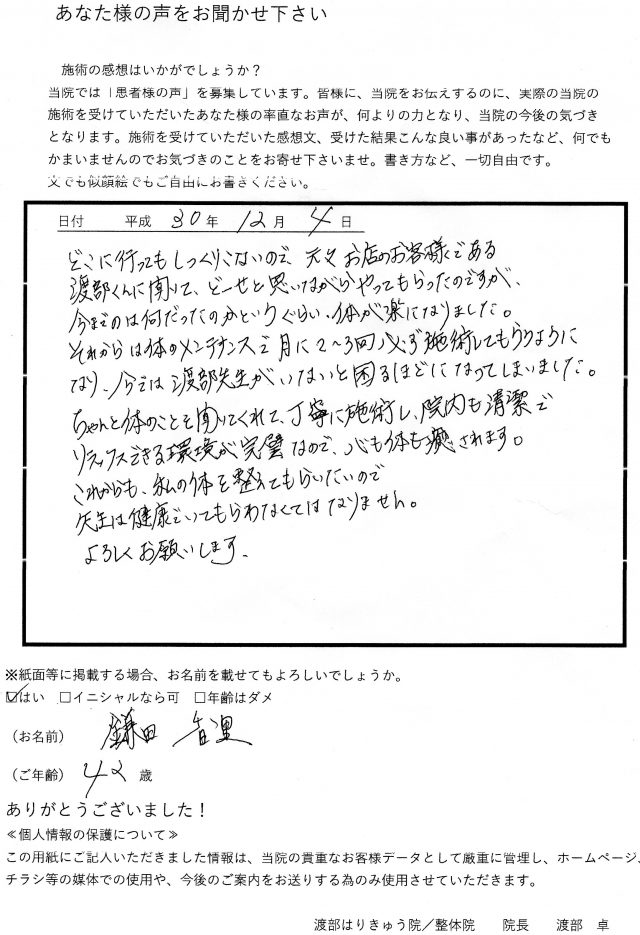 あなた様の声をお聞かせ下さい
施術の感想はいかがでしょうか？
当院では「患者様の声」を募集しています。皆様に、当院をお伝えするのに、実際の当院の
施術を受けていただいたあなた様の率直なお声が、何よりの力となり、当院の今後の気づき
となります。施術を受けていただいた感想文、受けた結果こんな良い事があったなど、何でも
かまいませんのでお気づきのことをお寄せ下さいませ。書き方など、一切自由です。
文でも似顔絵でもご自由にお書きください。
日付 平成 30年 12月 4日
どこに行ってもしっくりこないので、元々お店のお客様である
渡部くんに聞いて、どーせと思いながらやってもらったのですが、
今までのは何だったのかというぐらい、体が楽になりました。
それからは体のメンテナンスで月に2〜3回必ず施術してもらうように
なり、今では渡部先生がいないと困るほどになってしまいました。
ちゃんと体のことを聞いてくれて、丁寧に施術し、院内も清潔で
リラックスできる環境が完璧なので、心も体も癒されます。
これからも、私の体を整えてもらいたいので
先生は健康でいてもらわなくてはなりません。
よろしくお願いします。
※紙面等に掲載する場合、お名前を載せてもよろしいでしょうか。
☑はい □イニシャルなら可 □年齢はダメ
（お名前） 鎌田
（ご年齢） 42 歳
ありがとうございました！
≪個人情報の保護について≫
この用紙にご記入いただきました情報は、当院の貴重なお客様データとして厳重に管理し、ホームページ、
チラシ等の媒体での使用や、今後のご案内をお送りする為のみ使用させていただきます。
渡部はりきゅう院／整体院 院長 渡部 卓